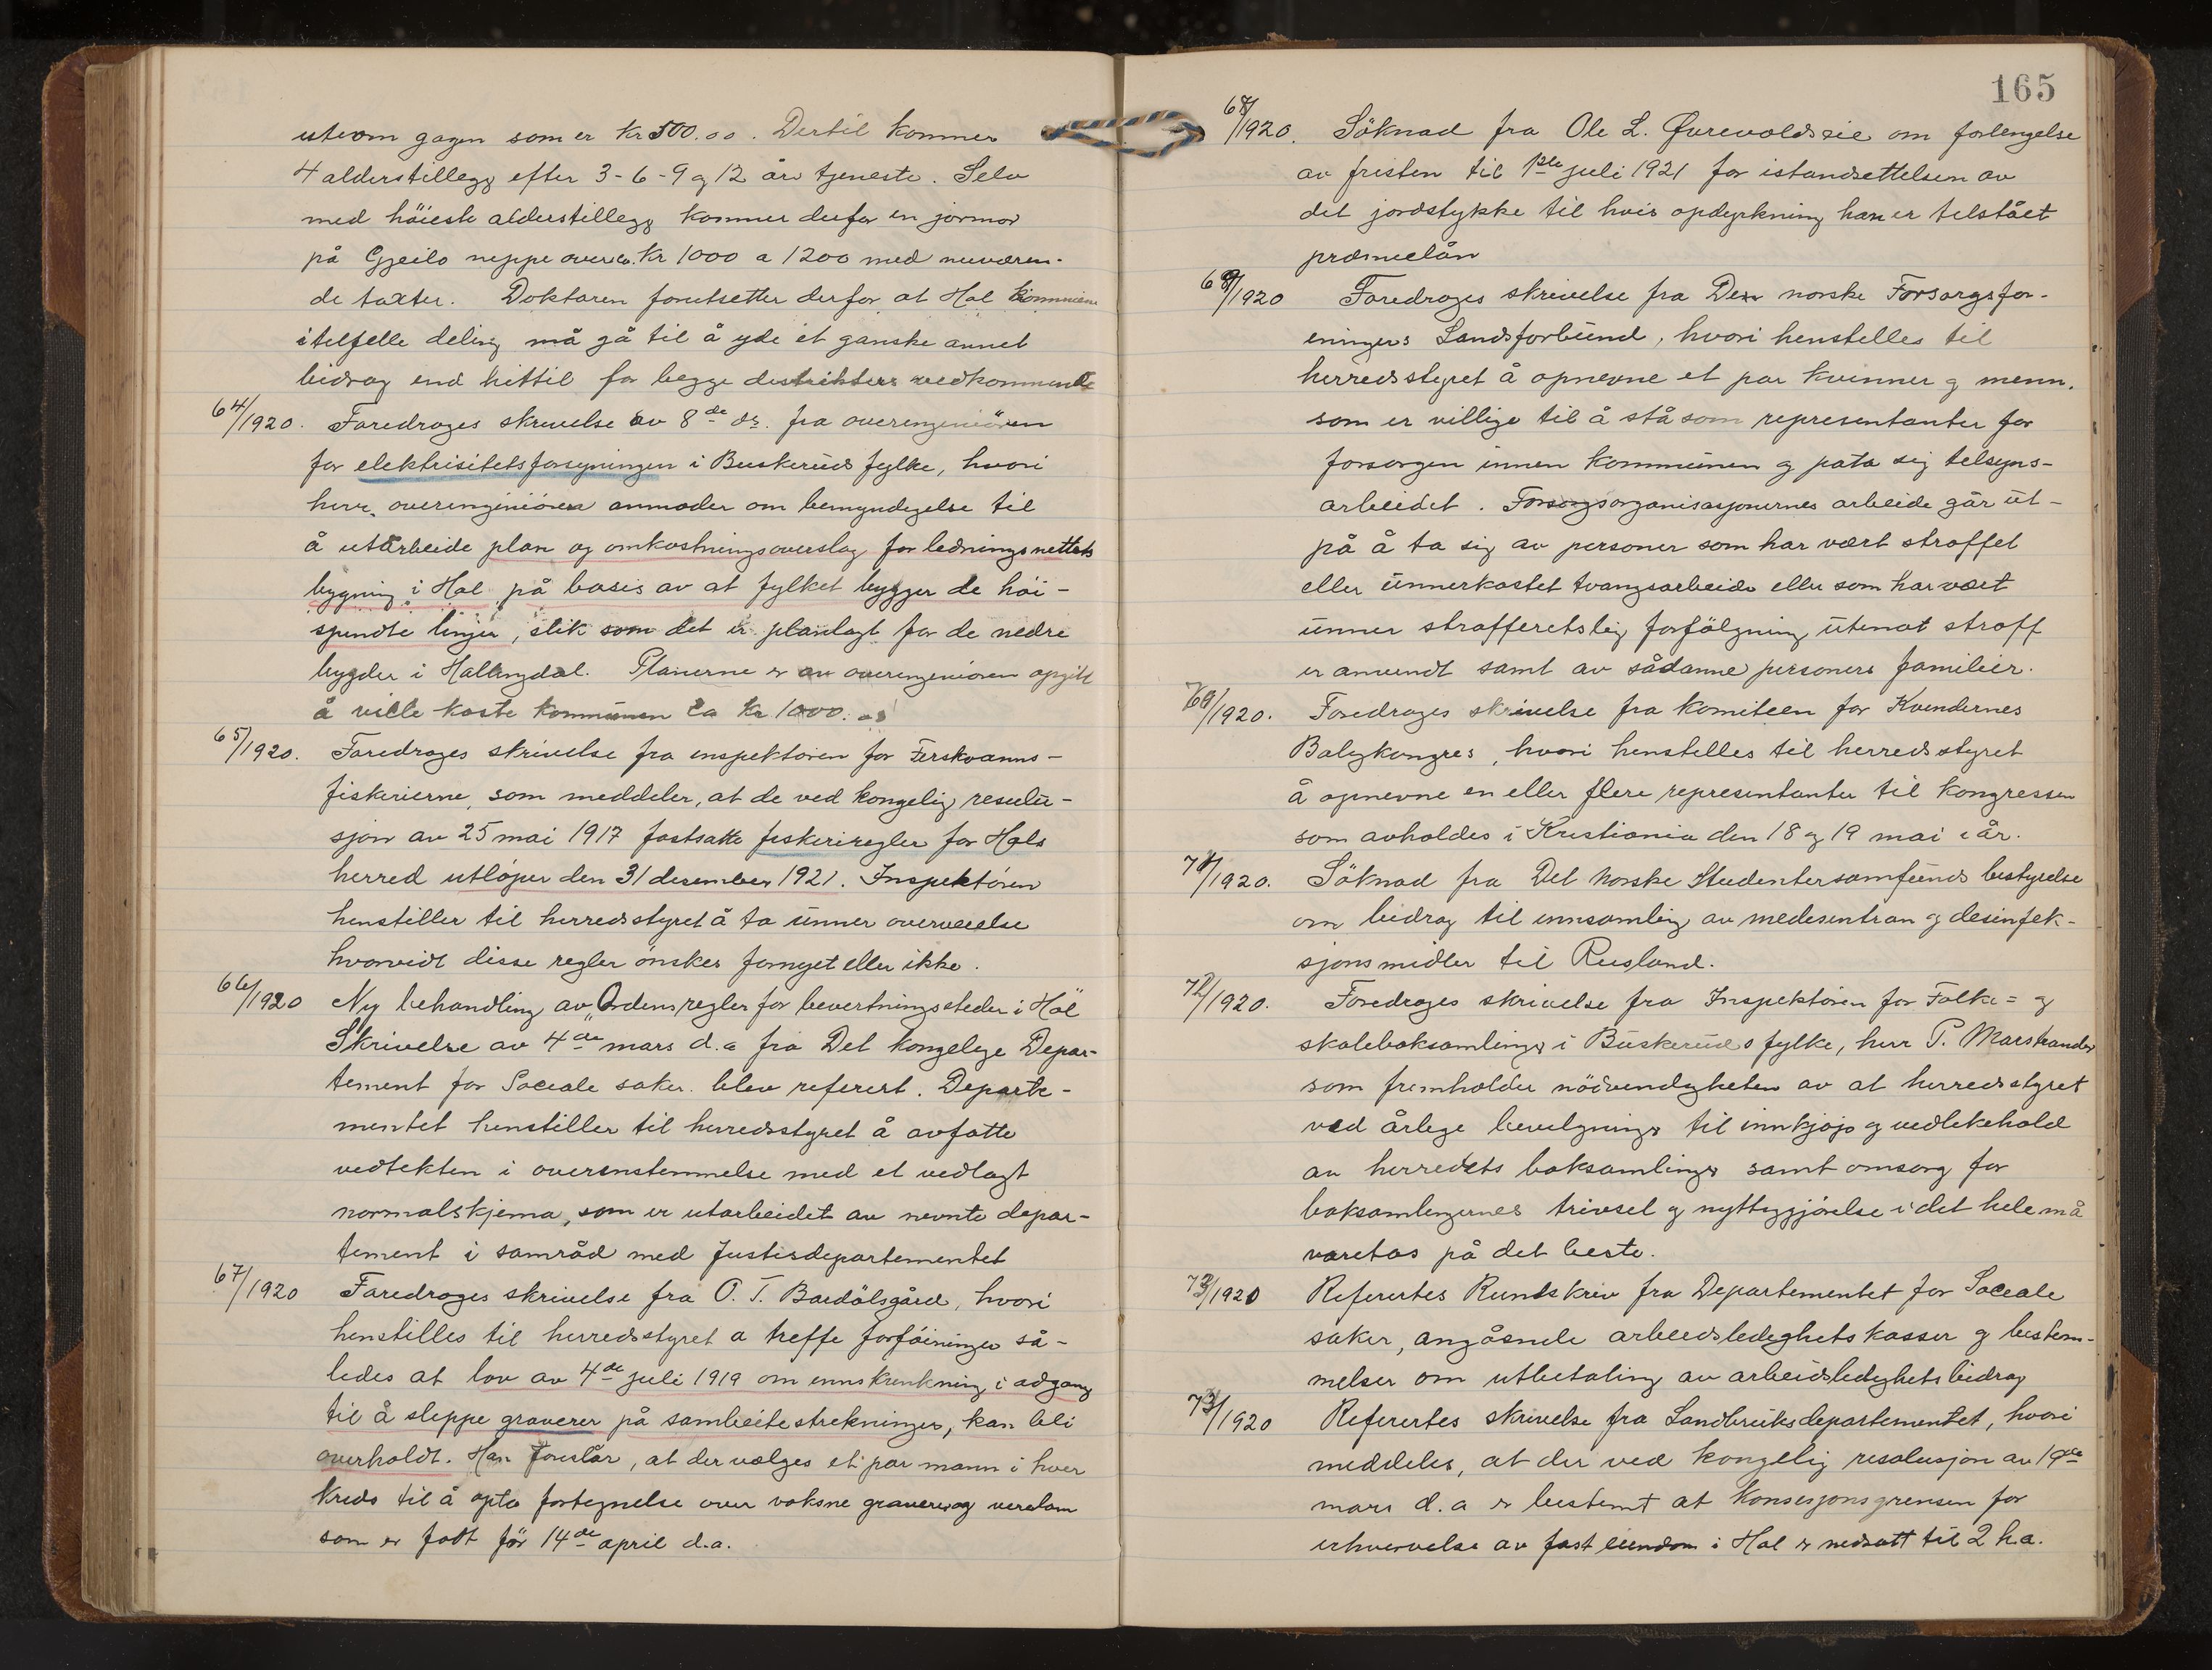 utenom gagen som er kr 500.00. Dertil kommer
4 alderstillegg efter 3-6-9 og 12 års tjeneste. Selv
med höieste alderstillegg kommer derfor en jormor
på Gjeilo neppe over ca. kr 1000 a 1200 med nuværen-
de taxter. Doktoren forutsetter derfor at Hol kommune
i tilfelle deling må gå til å yde et ganske annet
bidrag end hittil for begge distrikters vedkommende
64/1920. Foredroges skrivelse av 8de ds. fra overingeniören
for elektrisitetsforsyningen i Buskeruds fylke, hvori
herr. overingeniören anmoder om bemyndigelse til
å utarbeide plan og omkostningsoverslag for ledningsnettets
bygning i Hol på basis av at fylket bygger de höi-
spendte linjer, slik som det er planlagt for de nedre
bygder i Hallingdal. Planerne er av overingeniören opgitt
å ville koste kommunen ca kr 1000.00
65/1920. Foredroges skrivelse fra inspektören for Ferskvanns-
fiskerierne, som meddeler, at de ved kongelig resulu-
sjon av 25 mai 1917 fastsatte fiskeriregler for Hols
herred utlöper den 31 desember 1921. Inspektören
henstiller til herredsstyret å ta unner overveielse
hvorvidt disse regler önskes fornyet eller ikke.
66/1920 Ny behandling av "Ordensregler for bevertningssteder i Hol"
Skrivelse av 4de mars d.a fra Det kongelige Depar-
tement for Sociale saker. blev referert. Departe-
mentet henstiller til herredsstyret å avfatte
vedtekten i overensstemmelse med et vedlagt
normalskjema, som er utarbeidet av nevnte depar-
tement i samråd med Justisdepartementet
67/1920 Foredroges skrivelse fra O. T. Bardölsgård, hvori
henstilles til herredsstyret a treffe forföininger så-
ledes at lov av 4de juli 1919 om innskrenkning i adgang
til å sleppe graverer på sambeitestrekninger, kan bli
overholdt. Han foreslår, at der vælges et par mann i hver
kreds til å opta fortegnelse over voksne graverer og verelam
som er født för 14de april d.a.
165
68/1920. Söknad fra Ole L. Øvrevoldseie om forlengelse
av fristen til 1ste juli 1921 for istandsettelsen av
det jordstykke til hvis opdyrkning han er tilstået
præmielån
69/1920 Foredroges skrivelse fra Den norske Forsorgsfor-
eningers Landsforbund, hvori henstilles til
herredsstyret å opnevne et par kvinner og menn.
som er villige til å stå som representanter for
forsorgen innen kommunen og pata sig tilsyns-
arbeidet. Forsorgsorganisasjonernes arbeide går ut-
på å ta sig av personer som har vært straffet
eller unnerkastet tvangsarbeide eller som har vært
unner strafferetslig forfölgning utenat straff
er anvendt samt av sådanne personers familier.
70/1920. Foredroges skrivelse fra komiteen for Kvindernes
Boligkongres, hvori henstilles til herredsstyret
å opnevne en eller flere representanter til kongressen
som avholdes i Kristiania den 18 og 19 mai i år.
71/1920. Söknad fra Det Norske Studentersamfunds bestyrelse
om bidrag til innsamling av medesintran og desinfek-
sjonsmidler til Rusland.
72/1920. Foredroges skrivelse fra Inspektören for Folke= og
skoleboksamlinger i Buskeruds fylke, herr P. Marstrander
som fremholder nödvendigheten av at herredsstyret
ved årlige bevilgninger til innkjöp og vedlikehold
av herredets boksamlinger samt omsorg for
boksamlingernes trivsel og nyttiggjörelse i det hele må
varetas på det beste.
73/1920 Referertes Rundskriv fra Departementet for Sociale
saker, angåsnde arbeidsledighetskasser og bestem-
melser om utbetaling av arbeidsledighetsbidrag
73/1920 Referertes skrivelse fra Landbruksdepartementet, hvori
meddeles, at der ved kongelig resolusjon av 19de
mars d.a er bestemt at konsesjonsgrensen for
erhvervelse av fast eiendom i Hol er nedsatt til 2 ha.